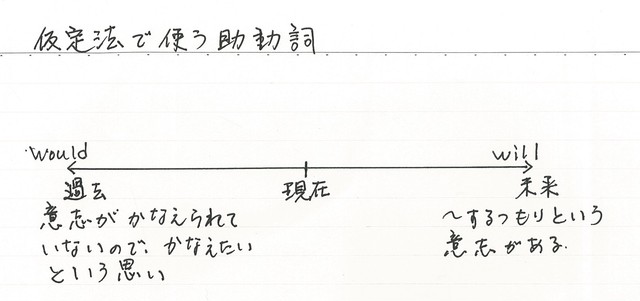 仮定法で使う助動詞
would
will
過去
現在
未来
意志がかなえられて
いないので、かなえたい
という思い
〜するつもりという
意志がある.